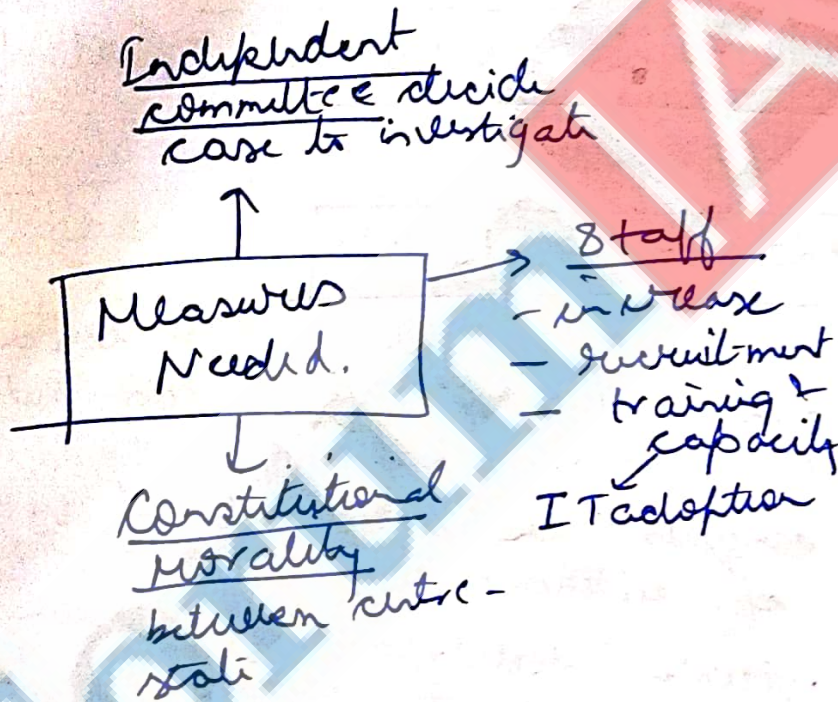 Independent
committee decide
case to investigate
Measures
Needed.
Staff
- increase
- recruitment
- training &
capacity
IT adoption
Constitutional
Morality
between centre -
state
orum IA